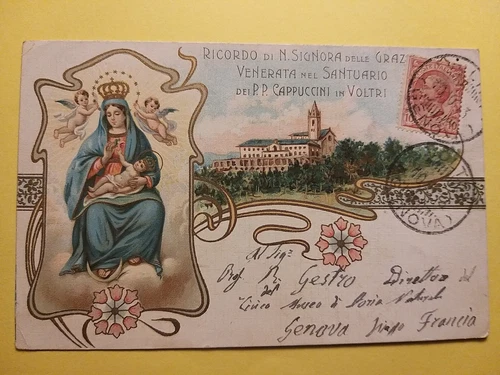 RICORDO DI N. SIGNORA DELLE GRAZ
VENERATA NEL SANTUARIO
DEI P.P. CAPPUCCINI IN VOLTRI
Al Sigr
Prof R. Gestro Direttore del
del
Civico Museo di Storia Naturale
Genova Francia
NOVA)